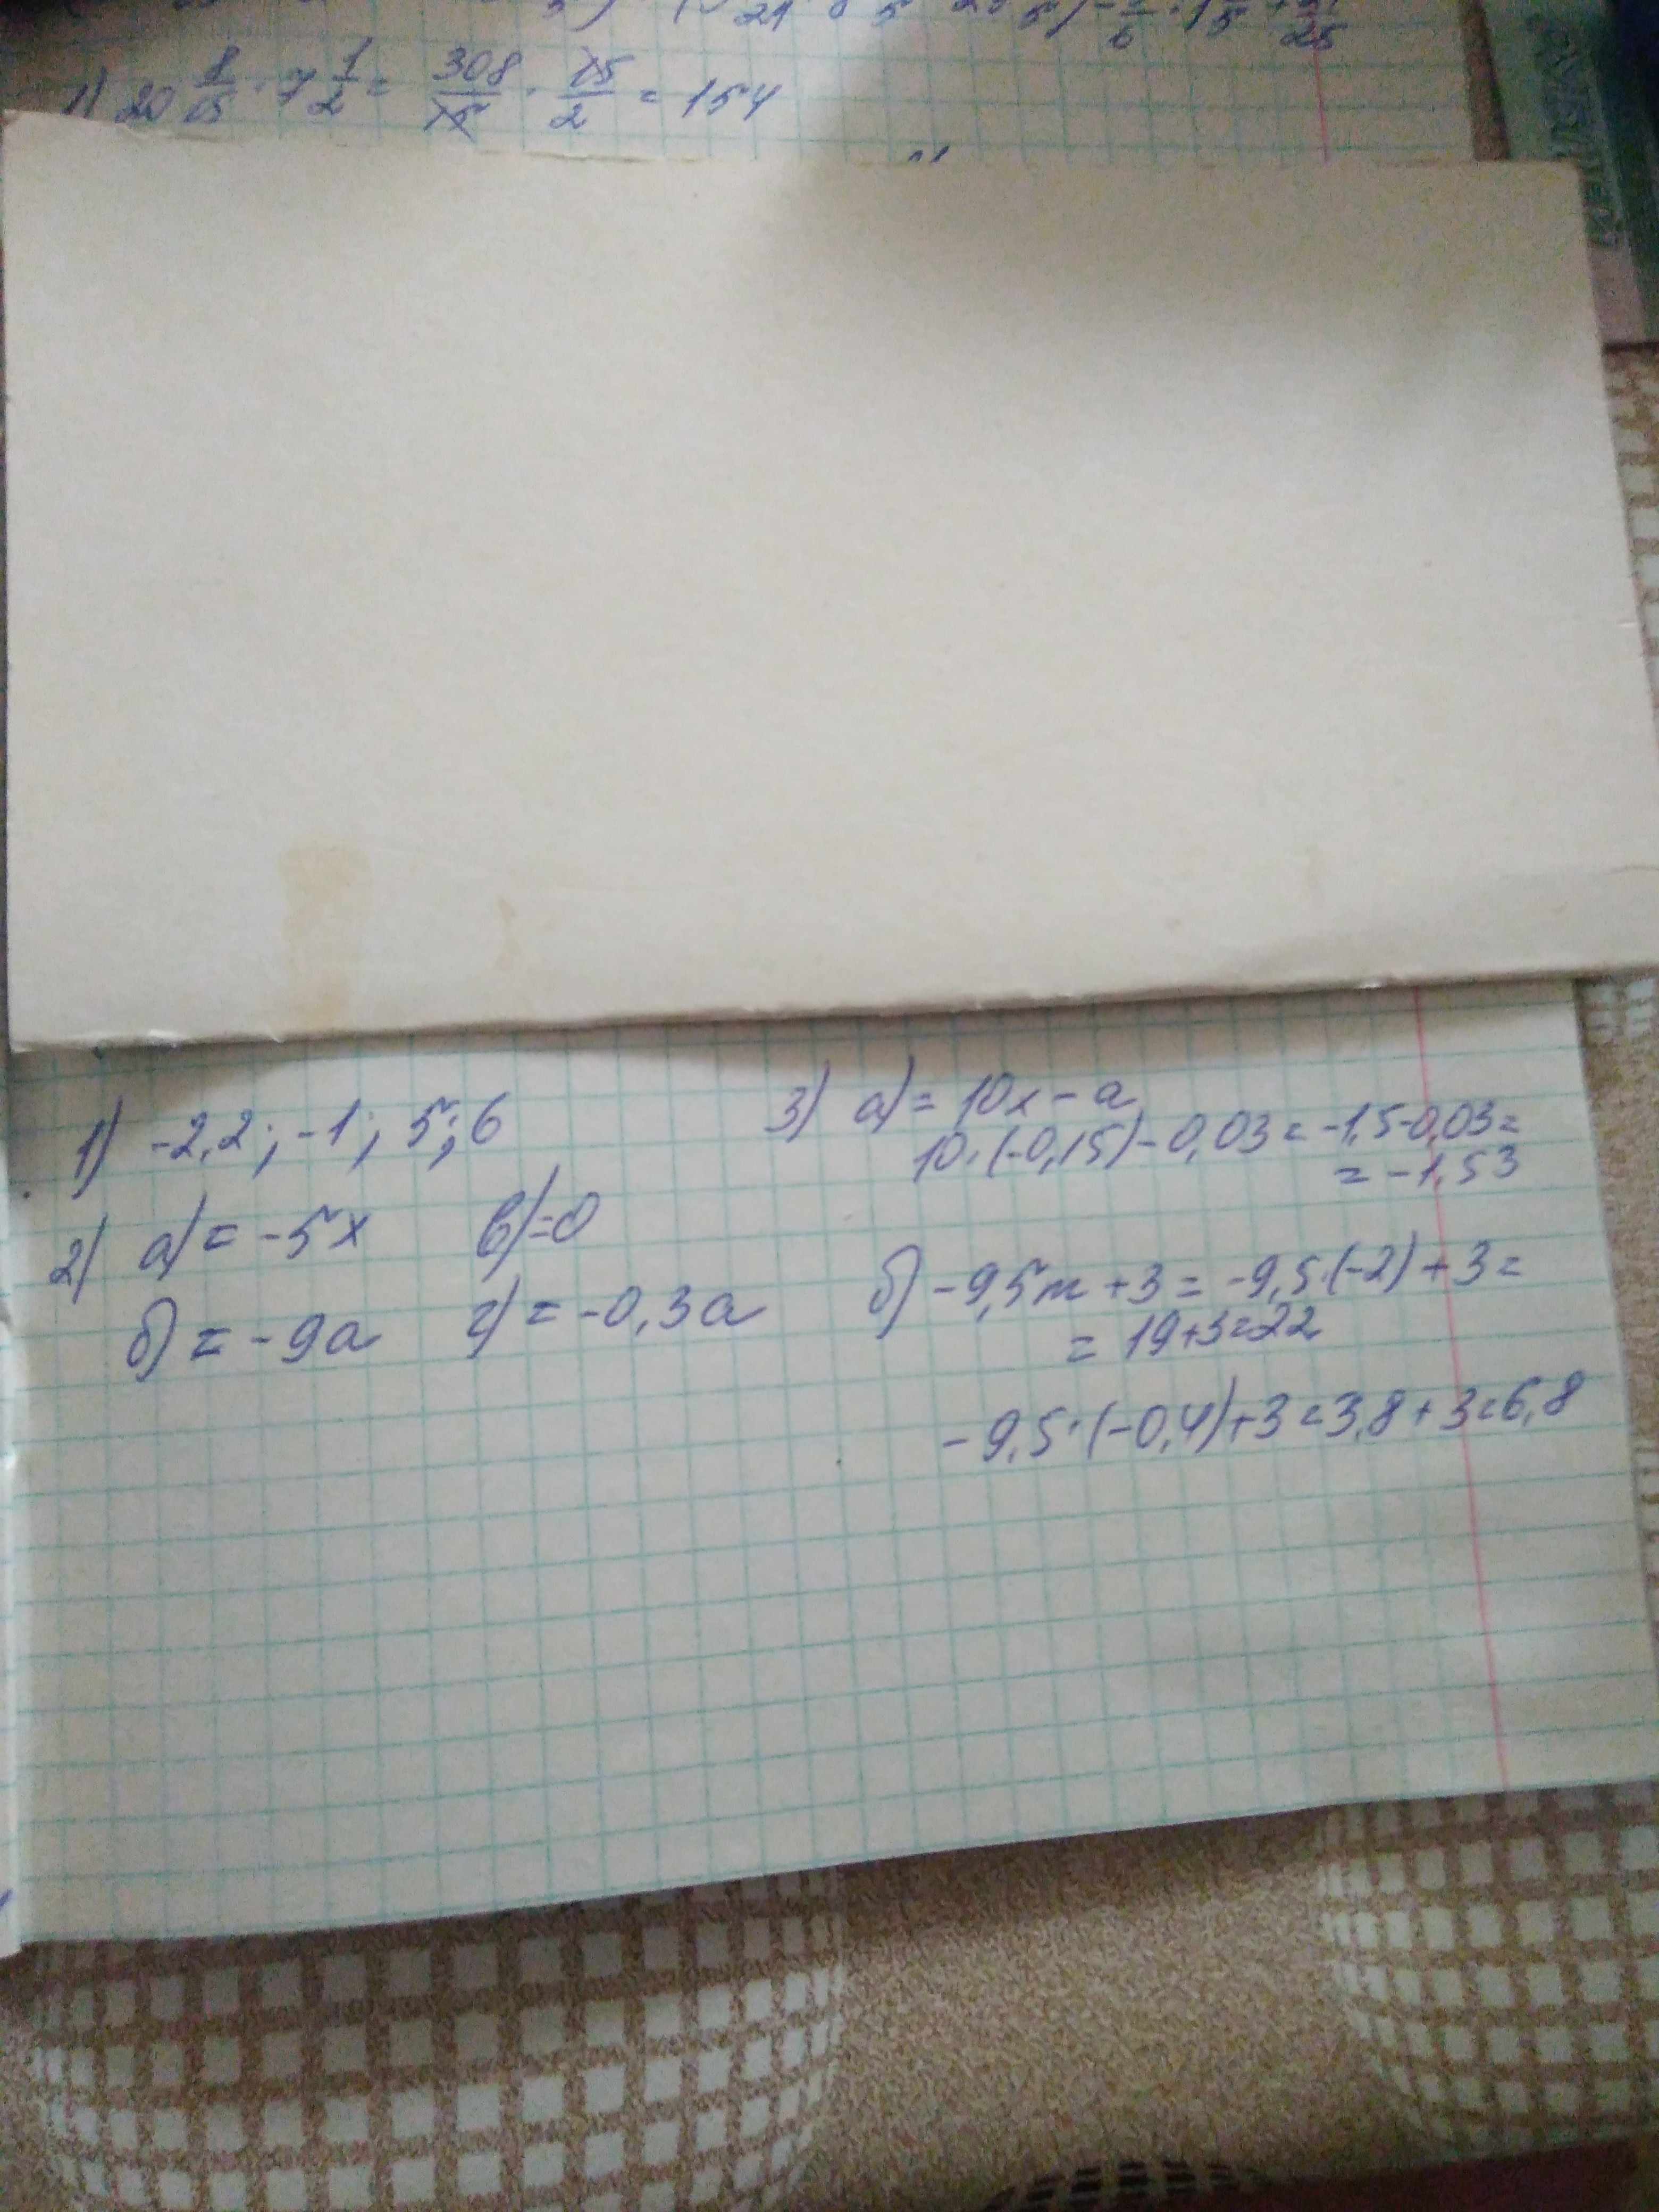 1) 20 8/15 · 7 1/2 = 308/15 · 15/2 = 154
1) -2,2; -1; 5; 6
2) а) = -5x в) = 0
б) = -9a г) = -0,3a
3) а) = 10x - a
10·(-0,15) - 0,03 = -1,5-0,03 =
= -1,53
б) -9,5m + 3 = -9,5·(-2) + 3 =
= 19+3=22
-9,5·(-0,4)+3=3,8+3=6,8